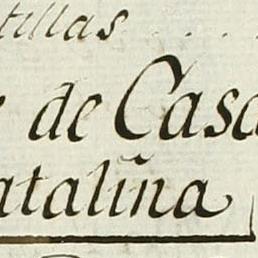 tillas . . .
de Casa
atalina